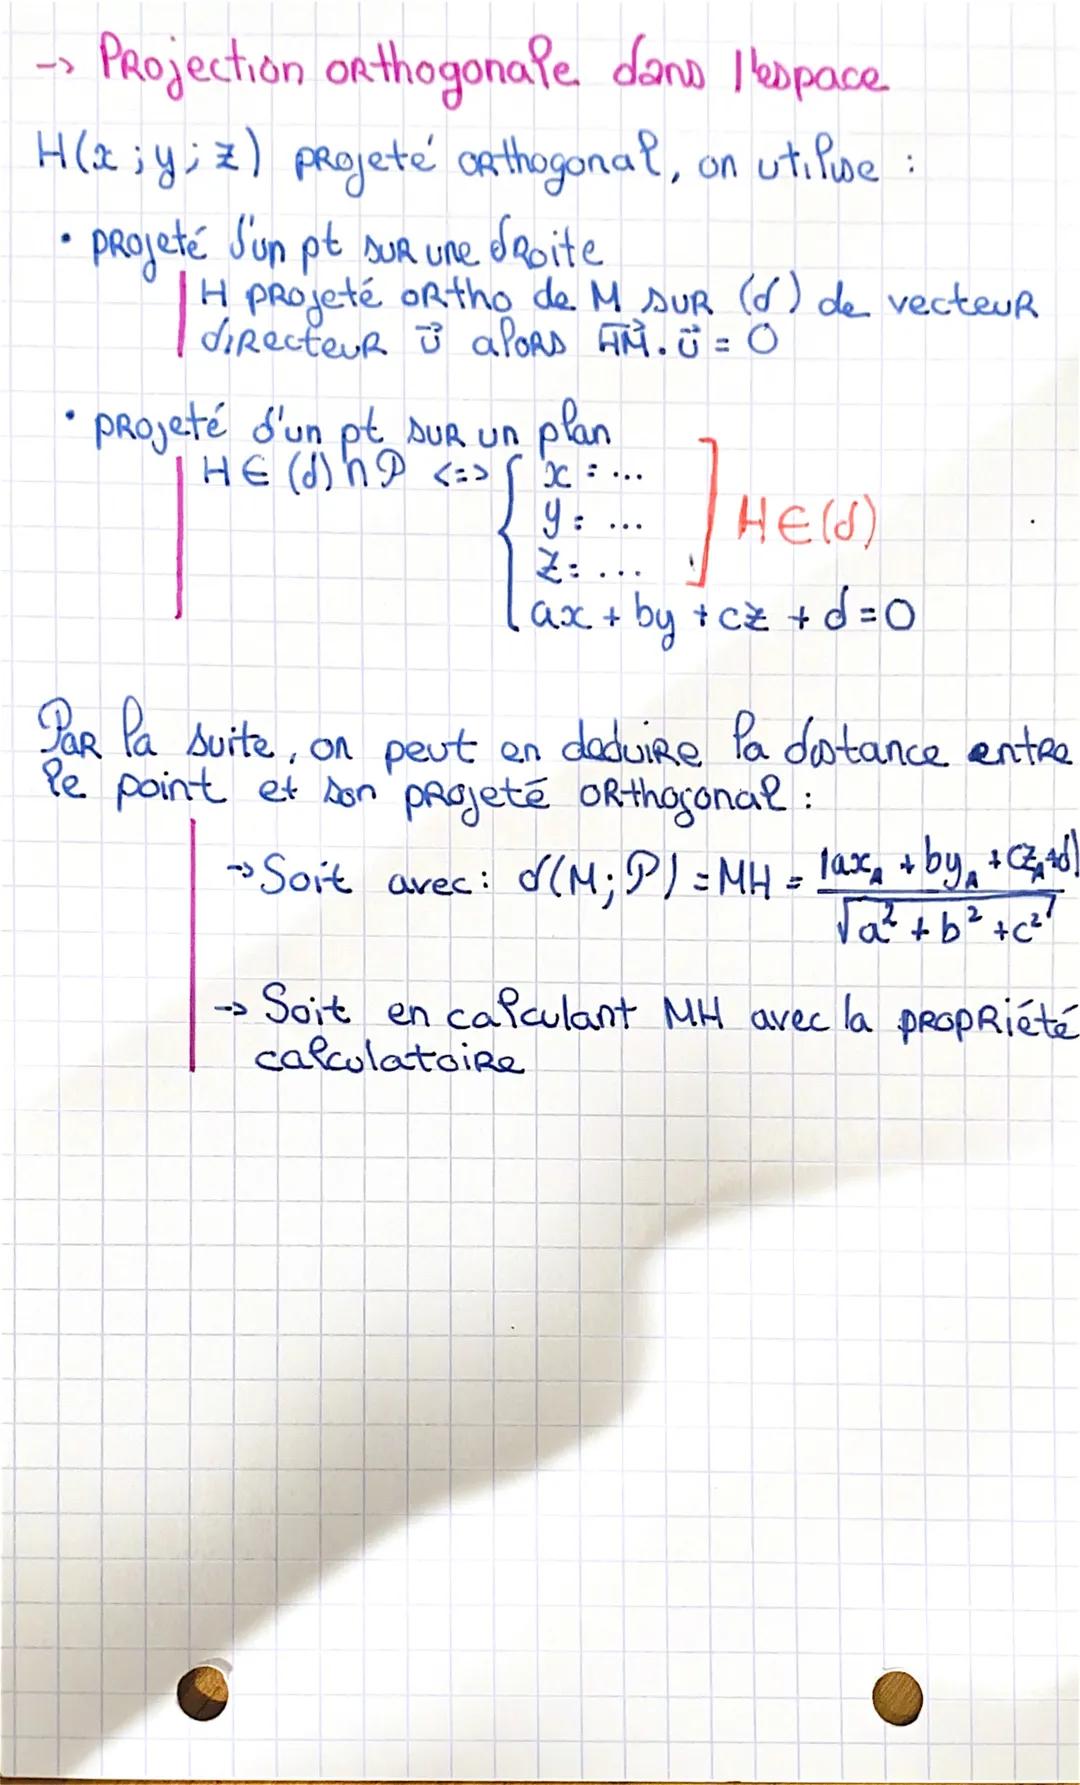 -> Projection orthogonale dans l'espace
H(x ; y ; z) projeté orthogonal, on utilise :
• projeté d'un pt sur une droite
H projeté ortho de M sur (d) de vecteur
directeur u⃗ alors HM⃗ . u⃗ = 0
• projeté d'un pt sur un plan
H ∈ (d) ∩ P <=> { x = ...
y = ...
z = ...
] H ∈ (d)
ax + by + cz + d = 0
Par la suite, on peut en deduire la distance entre
le point et son projeté orthogonal :
-> Soit avec : d(M ; P) = MH = |ax_A + by_A + cz_A + d| / √(a² + b² + c²)
-> Soit en calculant MH avec la propriété
calculatoire